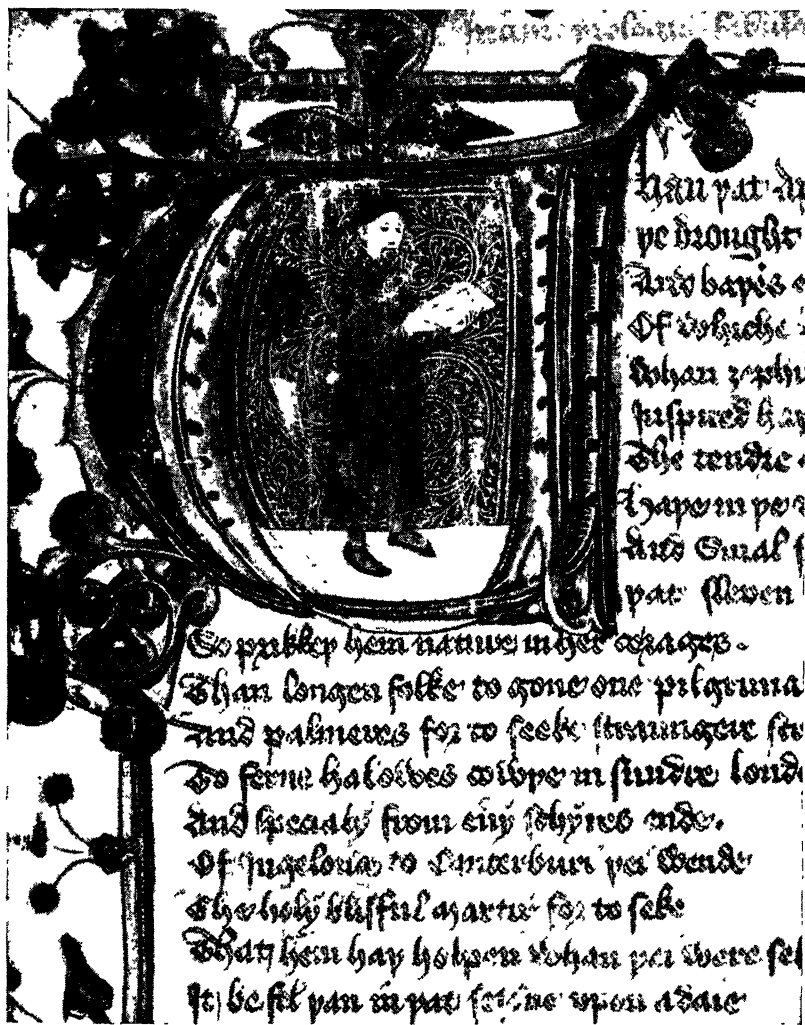 Whan þat Ap
þe drought
And baþes e
Of whiche
Whan zephir
Inspired haþ
The tendre
haþe in þe
And Smal f
þat slepen
So prikkeþ hem nature in her corages.
Than longen folke to gone one pilgrima
And palmeres for to seeke straungere str
To ferne halowes cowþe in sundre londe
And specialy from eny schyres ende.
Of Ingelond to Canterburi þei wende
The holy blisful martir for to seke
That hem haþ holpen whan þei were se
It be fil þan in þat sesone upon a daie